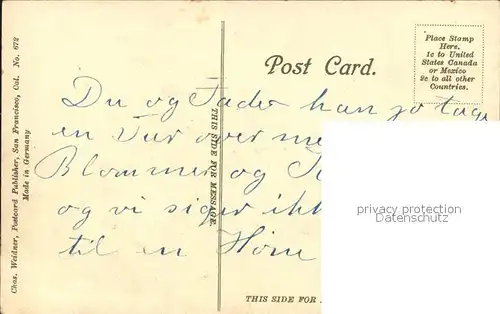 Post Card.
Place Stamp
Here.
1c to United
States Canada
or Mexico
2c to all other
Countries.
Du og Fader kan jo tage
en Tur over me
Blommer og
og vi siger ikk
til en
THIS SIDE FOR MESSAGE
THIS SIDE FOR
Chas. Weidner, Postcard Publisher, San Francisco, Cal. No. 672
Made in Germany
privacy protection
Datenschutz